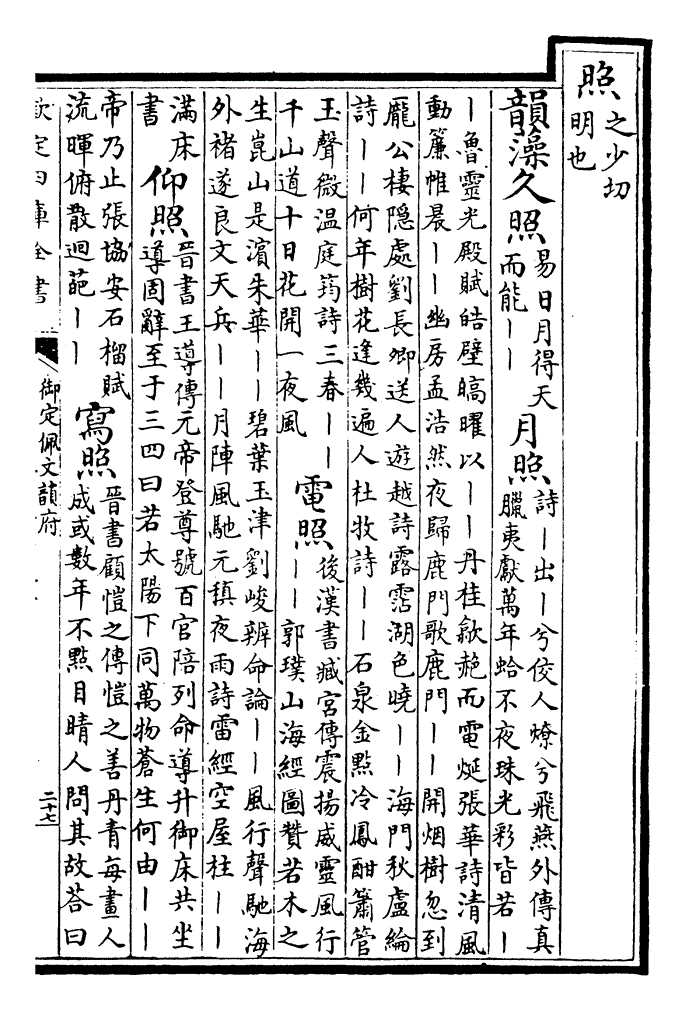 照 之少切
明也
韻藻久照 易日月得天
而能｜｜
月照 詩｜出｜兮佼人燎兮飛燕外傳真
臘夷獻萬年蛤不夜珠光彩皆若｜
｜魯靈光殿賦皓壁皜曜以｜｜丹桂歙赩而電烻張華詩清風
動簾帷晨｜｜幽房孟浩然夜歸鹿門歌鹿門｜｜開烟樹忽到
龐公棲隱處劉長卿送人遊越詩露霑湖色曉｜｜海門秋盧綸
詩｜｜何年樹花逢幾遍人杜牧詩｜｜石泉金點冷鳳酣簫管
玉聲微温庭筠詩三春｜｜
千山道十日花開一夜風
電照 後漢書臧宮傳震揚威靈風行
｜｜郭璞山海經圖贊若木之
生崑山是濱朱華｜｜碧葉玉津劉峻辨命論｜｜風行聲馳海
外褚遂良文天兵｜｜月陣風馳元稹夜雨詩雷經空屋柱｜｜
滿床
書
仰照 晉書王導傳元帝登尊號百官陪列命導升御床共坐
導固辭至于三四曰若太陽下同萬物蒼生何由｜｜
帝乃止張協安石榴賦
流暉俯散迴葩｜｜
寫照 晉書顧愷之傳愷之善丹青每畫人
成或數年不點目睛人問其故荅曰
欽定四庫全書
御定佩文韻府
二十七